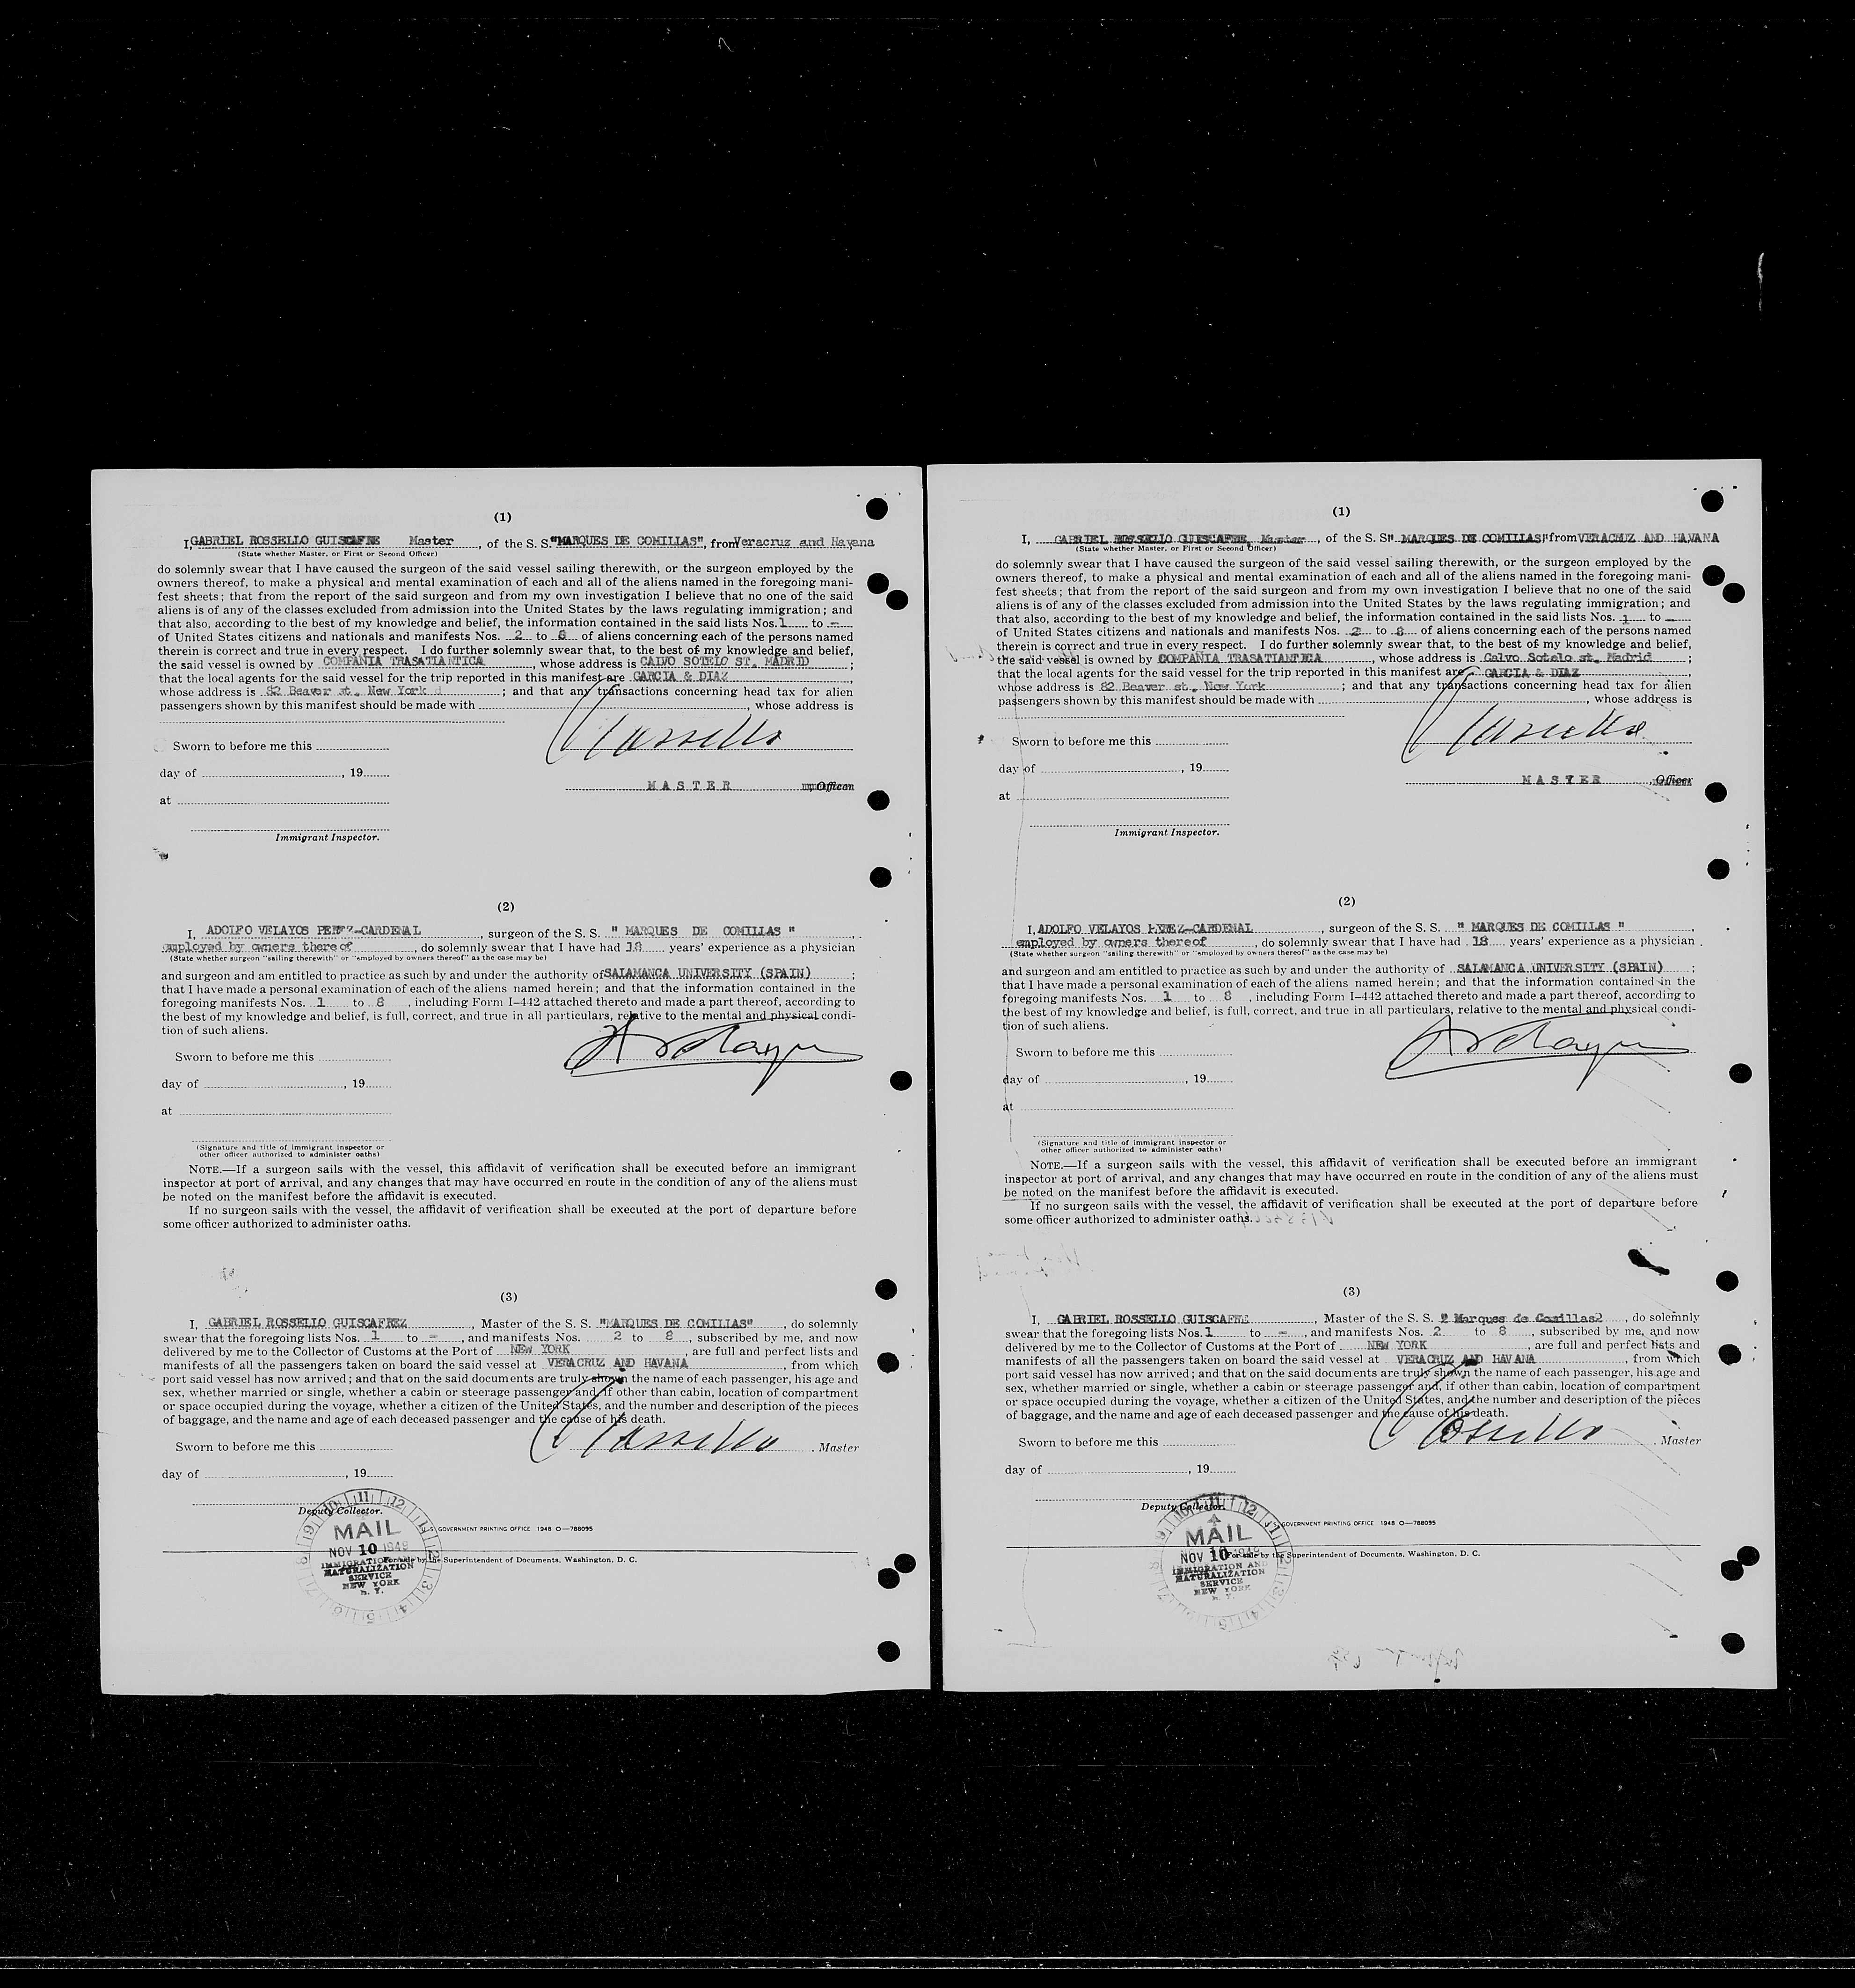 (1)
I, GABRIEL ROSSELLO GUISCAFRE Master, of the S. S. "MARQUES DE COMILLAS", from Veracruz and Havana
(State whether Master, or First or Second Officer)
do solemnly swear that I have caused the surgeon of the said vessel sailing therewith, or the surgeon employed by the
owners thereof, to make a physical and mental examination of each and all of the aliens named in the foregoing mani-
fest sheets; that from the report of the said surgeon and from my own investigation I believe that no one of the said
aliens is of any of the classes excluded from admission into the United States by the laws regulating immigration; and
that also, according to the best of my knowledge and belief, the information contained in the said lists Nos. 1 to -
of United States citizens and nationals and manifests Nos. 2 to 8 of aliens concerning each of the persons named
therein is correct and true in every respect. I do further solemnly swear that, to the best of my knowledge and belief,
the said vessel is owned by COMPAÑIA TRASATLANTICA, whose address is CALVO SOTELO ST. MADRID;
that the local agents for the said vessel for the trip reported in this manifest are GARCIA & DIAZ,
whose address is 82 Beaver st. New York; and that any transactions concerning head tax for alien
passengers shown by this manifest should be made with, whose address is
Sworn to before me this
Rossello
day of, 19
MASTER Officer
at
Immigrant Inspector.
(2)
I, ADOLFO VELAYOS PEREZ-CARDENAL, surgeon of the S. S. " MARQUES DE COMILLAS "
employed by owners thereof, do solemnly swear that I have had 18 years' experience as a physician
(State whether surgeon "sailing therewith" or "employed by owners thereof" as the case may be)
and surgeon and am entitled to practice as such by and under the authority of SALAMANCA UNIVERSITY (SPAIN);
that I have made a personal examination of each of the aliens named herein; and that the information contained in the
foregoing manifests Nos. 1 to 8, including Form I-442 attached thereto and made a part thereof, according to
the best of my knowledge and belief, is full, correct, and true in all particulars, relative to the mental and physical condi-
tion of such aliens.
Sworn to before me this
day of, 19
at
(Signature and title of immigrant inspector or
other officer authorized to administer oaths)
NOTE.—If a surgeon sails with the vessel, this affidavit of verification shall be executed before an immigrant
inspector at port of arrival, and any changes that may have occurred en route in the condition of any of the aliens must
be noted on the manifest before the affidavit is executed.
If no surgeon sails with the vessel, the affidavit of verification shall be executed at the port of departure before
some officer authorized to administer oaths.
(3)
I, GABRIEL ROSSELLO GUISCAFREZ, Master of the S. S. "MARQUES DE COMILLAS", do solemnly
swear that the foregoing lists Nos. 1 to -, and manifests Nos. 2 to 8, subscribed by me, and now
delivered by me to the Collector of Customs at the Port of NEW YORK, are full and perfect lists and
manifests of all the passengers taken on board the said vessel at VERACRUZ AND HAVANA, from which
port said vessel has now arrived; and that on the said documents are truly shown the name of each passenger, his age and
sex, whether married or single, whether a cabin or steerage passenger and, if other than cabin, location of compartment
or space occupied during the voyage, whether a citizen of the United States, and the number and description of the pieces
of baggage, and the name and age of each deceased passenger and the cause of his death.
Sworn to before me this
Rossello, Master
day of, 19
Deputy Collector.
U. S. GOVERNMENT PRINTING OFFICE 1948 O—788095
For sale by the Superintendent of Documents, Washington, D. C.
MAIL
NOV 10 1949
IMMIGRATION AND
NATURALIZATION
SERVICE
NEW YORK
N. Y.
(1)
I, GABRIEL ROSSELLO GUISCAFRE, Master, of the S. S. " MARQUES DE COMILLAS" from VERACRUZ AND HAVANA
(State whether Master, or First or Second Officer)
do solemnly swear that I have caused the surgeon of the said vessel sailing therewith, or the surgeon employed by the
owners thereof, to make a physical and mental examination of each and all of the aliens named in the foregoing mani-
fest sheets; that from the report of the said surgeon and from my own investigation I believe that no one of the said
aliens is of any of the classes excluded from admission into the United States by the laws regulating immigration; and
that also, according to the best of my knowledge and belief, the information contained in the said lists Nos. 1 to -
of United States citizens and nationals and manifests Nos. 2 to 8 of aliens concerning each of the persons named
therein is correct and true in every respect. I do further solemnly swear that, to the best of my knowledge and belief,
the said vessel is owned by COMPAÑIA TRASATLANTICA, whose address is Calvo Sotelo st. Madrid;
that the local agents for the said vessel for the trip reported in this manifest are GARCIA & DIAZ,
whose address is 82 Beaver st. New York; and that any transactions concerning head tax for alien
passengers shown by this manifest should be made with, whose address is
Sworn to before me this
Rossello
day of, 19
MASTER, Officer
at
Immigrant Inspector.
(2)
I, ADOLFO VELAYOS PEREZ-CARDENAL, surgeon of the S. S. " MARQUES DE COMILLAS "
employed by owners thereof, do solemnly swear that I have had 18 years' experience as a physician
(State whether surgeon "sailing therewith" or "employed by owners thereof" as the case may be)
and surgeon and am entitled to practice as such by and under the authority of SALAMANCA UNIVERSITY (SPAIN);
that I have made a personal examination of each of the aliens named herein; and that the information contained in the
foregoing manifests Nos. 1 to 8, including Form I-442 attached thereto and made a part thereof, according to
the best of my knowledge and belief, is full, correct, and true in all particulars, relative to the mental and physical condi-
tion of such aliens.
Sworn to before me this
day of, 19
at
(Signature and title of immigrant inspector or
other officer authorized to administer oaths)
NOTE.—If a surgeon sails with the vessel, this affidavit of verification shall be executed before an immigrant
inspector at port of arrival, and any changes that may have occurred en route in the condition of any of the aliens must
be noted on the manifest before the affidavit is executed.
If no surgeon sails with the vessel, the affidavit of verification shall be executed at the port of departure before
some officer authorized to administer oaths.
(3)
I, GABRIEL ROSSELLO GUISCAFRE, Master of the S. S. " Marques de Comillas2, do solemnly
swear that the foregoing lists Nos. 1 to -, and manifests Nos. 2 to 8, subscribed by me, and now
delivered by me to the Collector of Customs at the Port of NEW YORK, are full and perfect lists and
manifests of all the passengers taken on board the said vessel at VERACRUZ AND HAVANA, from which
port said vessel has now arrived; and that on the said documents are truly shown the name of each passenger, his age and
sex, whether married or single, whether a cabin or steerage passenger and, if other than cabin, location of compartment
or space occupied during the voyage, whether a citizen of the United States, and the number and description of the pieces
of baggage, and the name and age of each deceased passenger and the cause of his death.
Sworn to before me this
Rossello, Master
day of, 19
Deputy Collector.
U. S. GOVERNMENT PRINTING OFFICE 1948 O—788095
For sale by the Superintendent of Documents, Washington, D. C.
MAIL
NOV 10 1949
IMMIGRATION AND
NATURALIZATION
SERVICE
NEW YORK
N. Y.